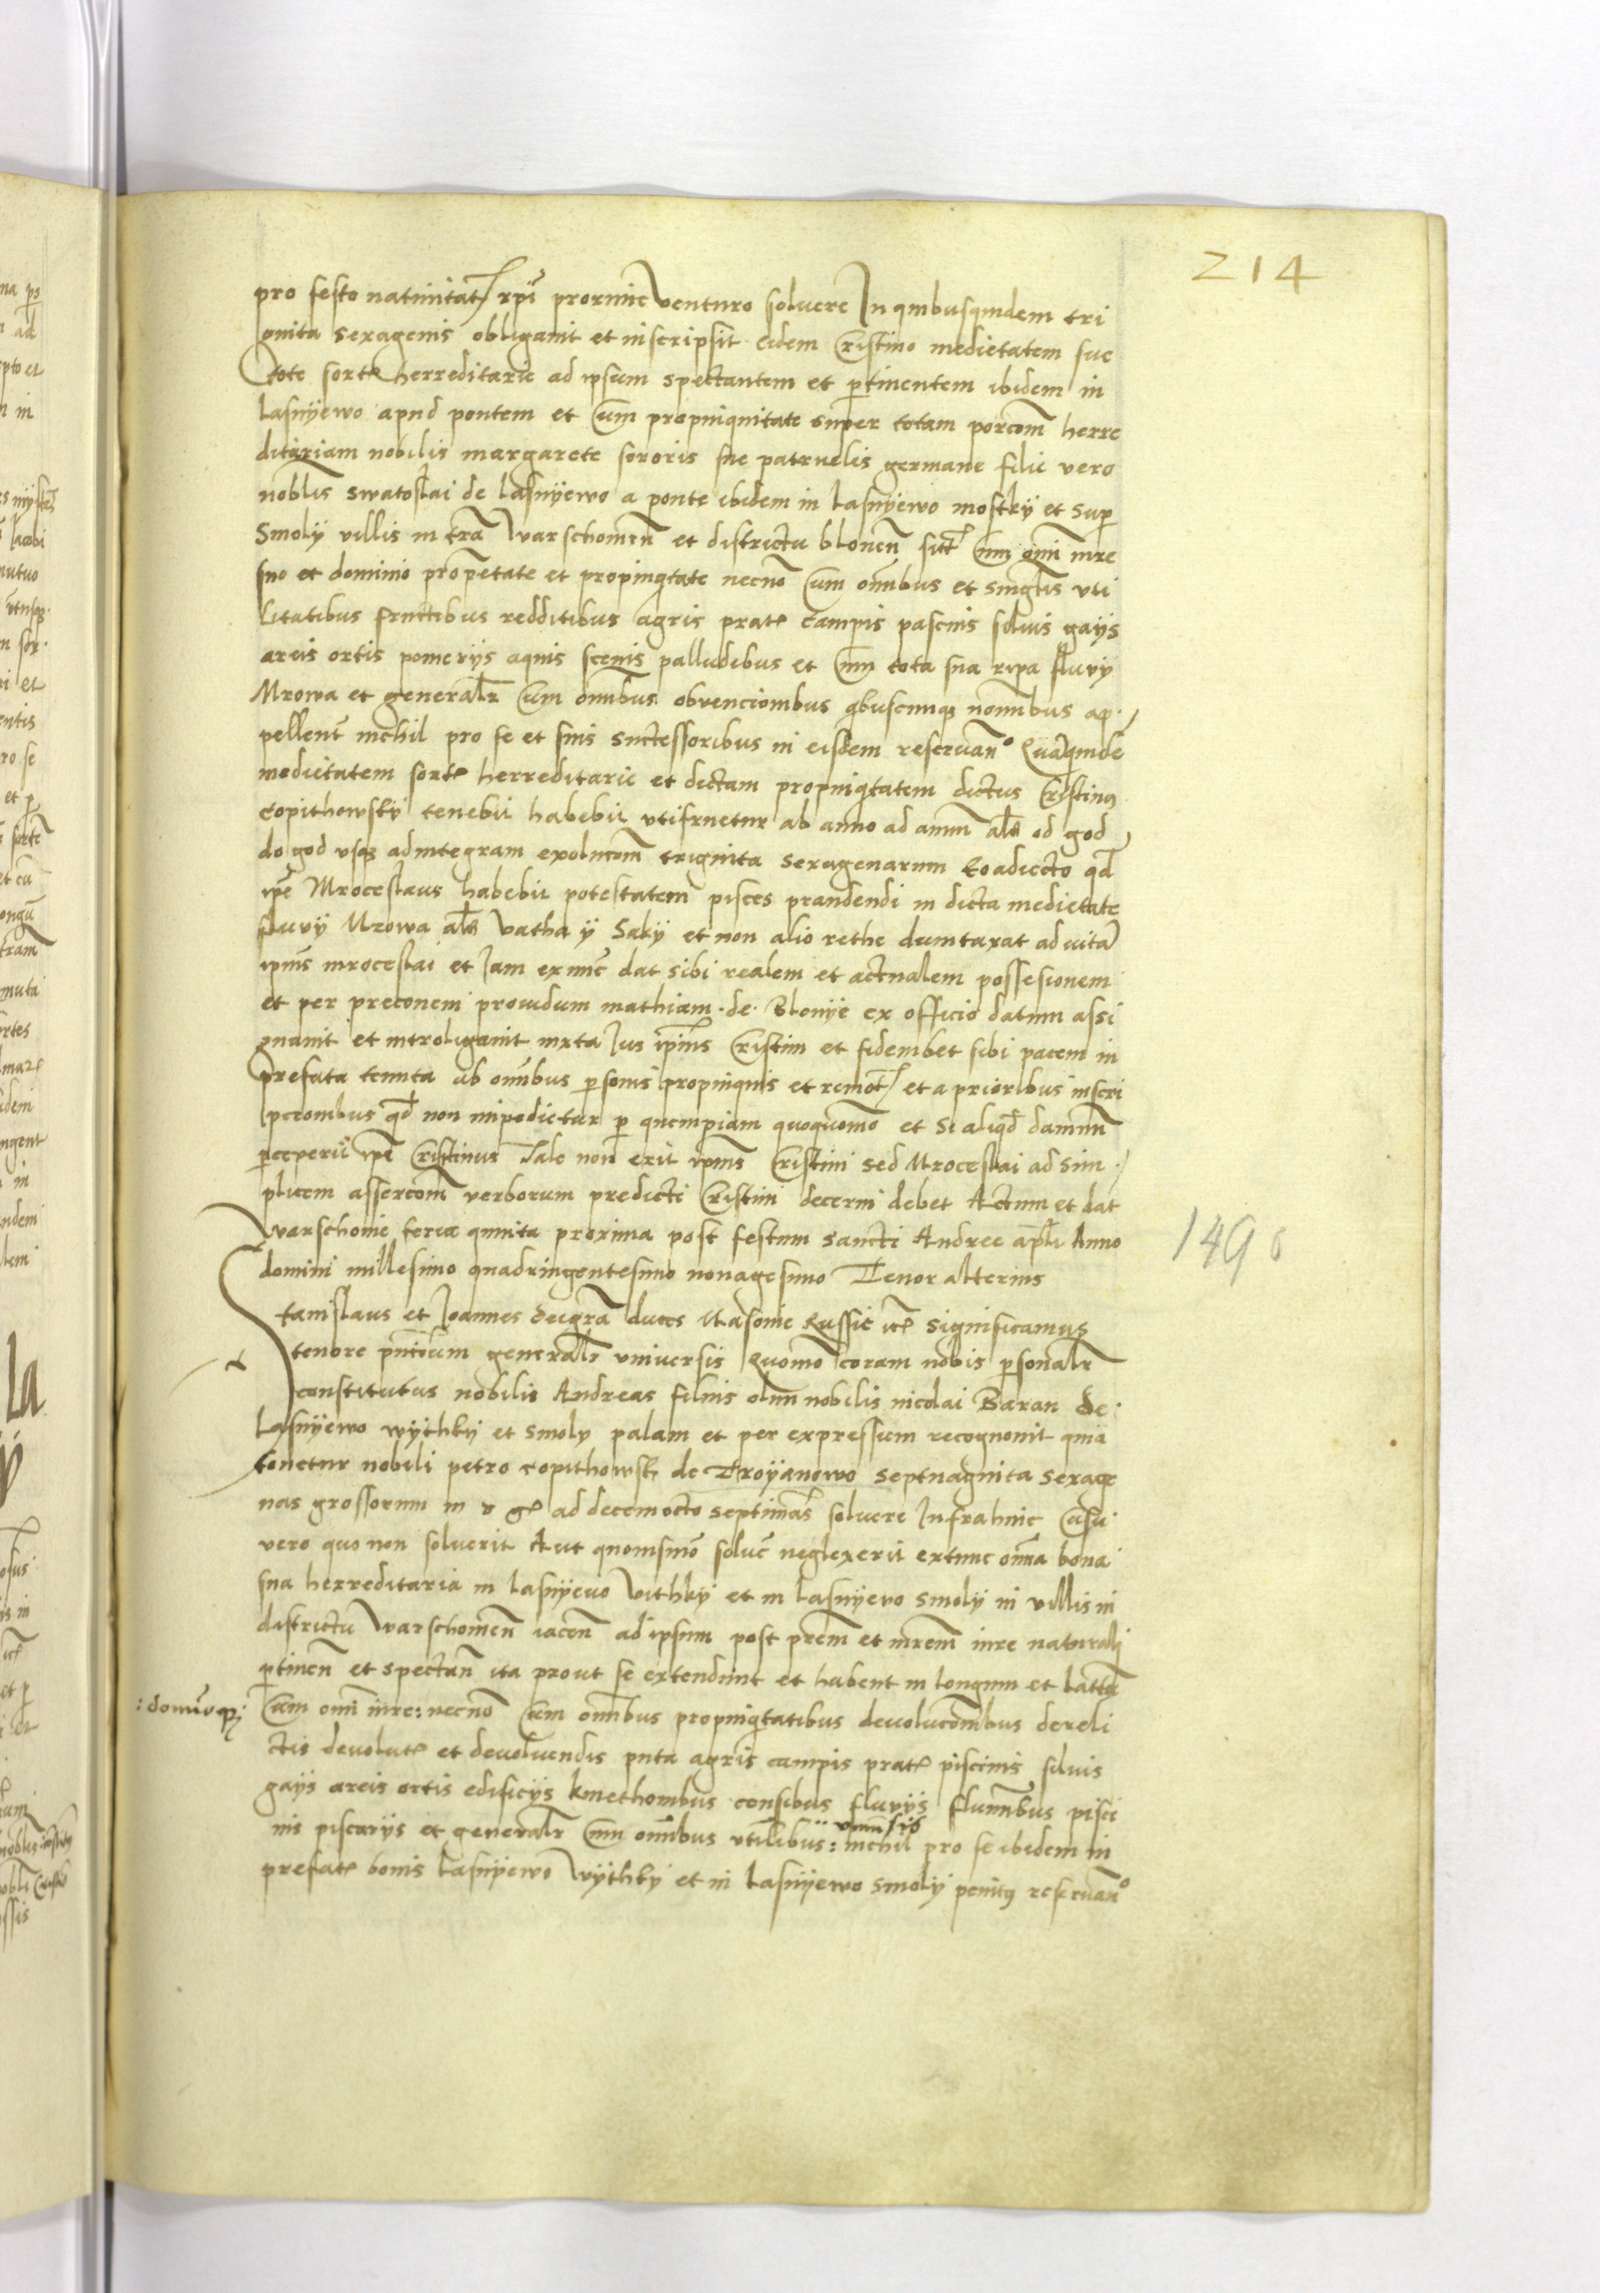 214
pro festo natiuitat rpi proxime venturo soluere In quibusquidem tri
ginta sexagenis obligauit et inscripsit eidem Cristino medietatem sue
tote sortis herreditarie ad ipsum spectantem et ptinentem ibidem in
Lasnyewo apud pontem et Cum propinquitate super totam porcom herre
ditariam nobilis margarete sororis sue patruelis germane filie vero
noblis swatoslai de Lasnyewo a ponte ibidem in Lasnyewo mostky et sup
Smoly villis in tra Warschouien et districtu blonen sitt Cum omi iure
suo et dominio propetate et propinqtate necno Cum omibus et singlis vti
litatibus fructibus redditibus agris prat campis pascuis siluis gays
areis ortis pomerijs aquis scenis palludibus et Cum tota sua ripa fluvy
Mrowa et generalr Cum omibus obvencionibus qbuscunq nominibus ap
pellent nichil pro se et suis successoribus in eisdem reseruano Quaquide
medietatem sort herreditarie et dictam propinqtatem dictus Cristinus
Copithowsky tenebit habebit vtifruetur ab anno ad annum als od god
do god vsq ad integram exolucom triginta sexagenarum Eo adiecto qd
ipe Mroceslaus habebit potestatem pisces prandendi in dicta medietate
fluvy Mrowa als Vatha y Saky et non alio rethe dumtaxat ad vita
ipius mroceslai et Iam exnuc dat sibi realem et actualem possesionem
et per preconem prouidum mathiam de Blonye ex officio datum assi
gnauit et introligauit iuxta Ius ipius Cristini et fideiubet sibi pacem in
prefata tenuta ab omibus psonis propinquis et remot et a prioribus inscri
pcionibus qd non impedietur p quempiam quoquomo et Si aliqd damnu
pceperit ipe Cristinus Tale non erit ipius Cristini sed Mroceslai ad sim
plicem assercom verborum predicti Cristini decerni debet Actum et dat
Warschouie feria quinta proxima post festum sancti Andree apli Anno
domini millesimo quadringentesimo nonagesimo Tenor alterius
1490
Stanislaus et Ioannes deigra duces Masouie Russie etc Significamus
tenore pntium generalr vniuersis Quomo coram nobis psonalr
constitutus nobilis Andreas filius olim nobilis nicolai Baran de
Lasnyewo wythky et smoly palam et per expressum recognouit quia
tenetur nobili petro copithowsk de Troyanowo septuaginta sexage
nas grossorum in ad decemocto septimas soluere Infrahinc Casu
vero quo non soluerit Aut quouismo solue neglexerit extunc omia bona
sua herreditaria in Lasnyewo Vithky et in Lasnyewo smoly in villis in
districtu Warschouien iacen ad ipsum post prem et mrem iure naturali
ptinen et spectan ita prout se extendunt et habent in longum et latum
Cum omi iure : necno Cum omibus propinqtatibus devolucombus dereli
ctis devolut et devoluendis puta agris campis prat piscinis siluis
gays areis ortis edificijs kmethonibus censibus fluvijs fluminibus pisci
nis piscarijs et generalr Cum omibus vtilibus : nichil pro se ibidem in
prefat bonis Lasnyewo Wythky et in Lasnyewo smoly penitus reseruano